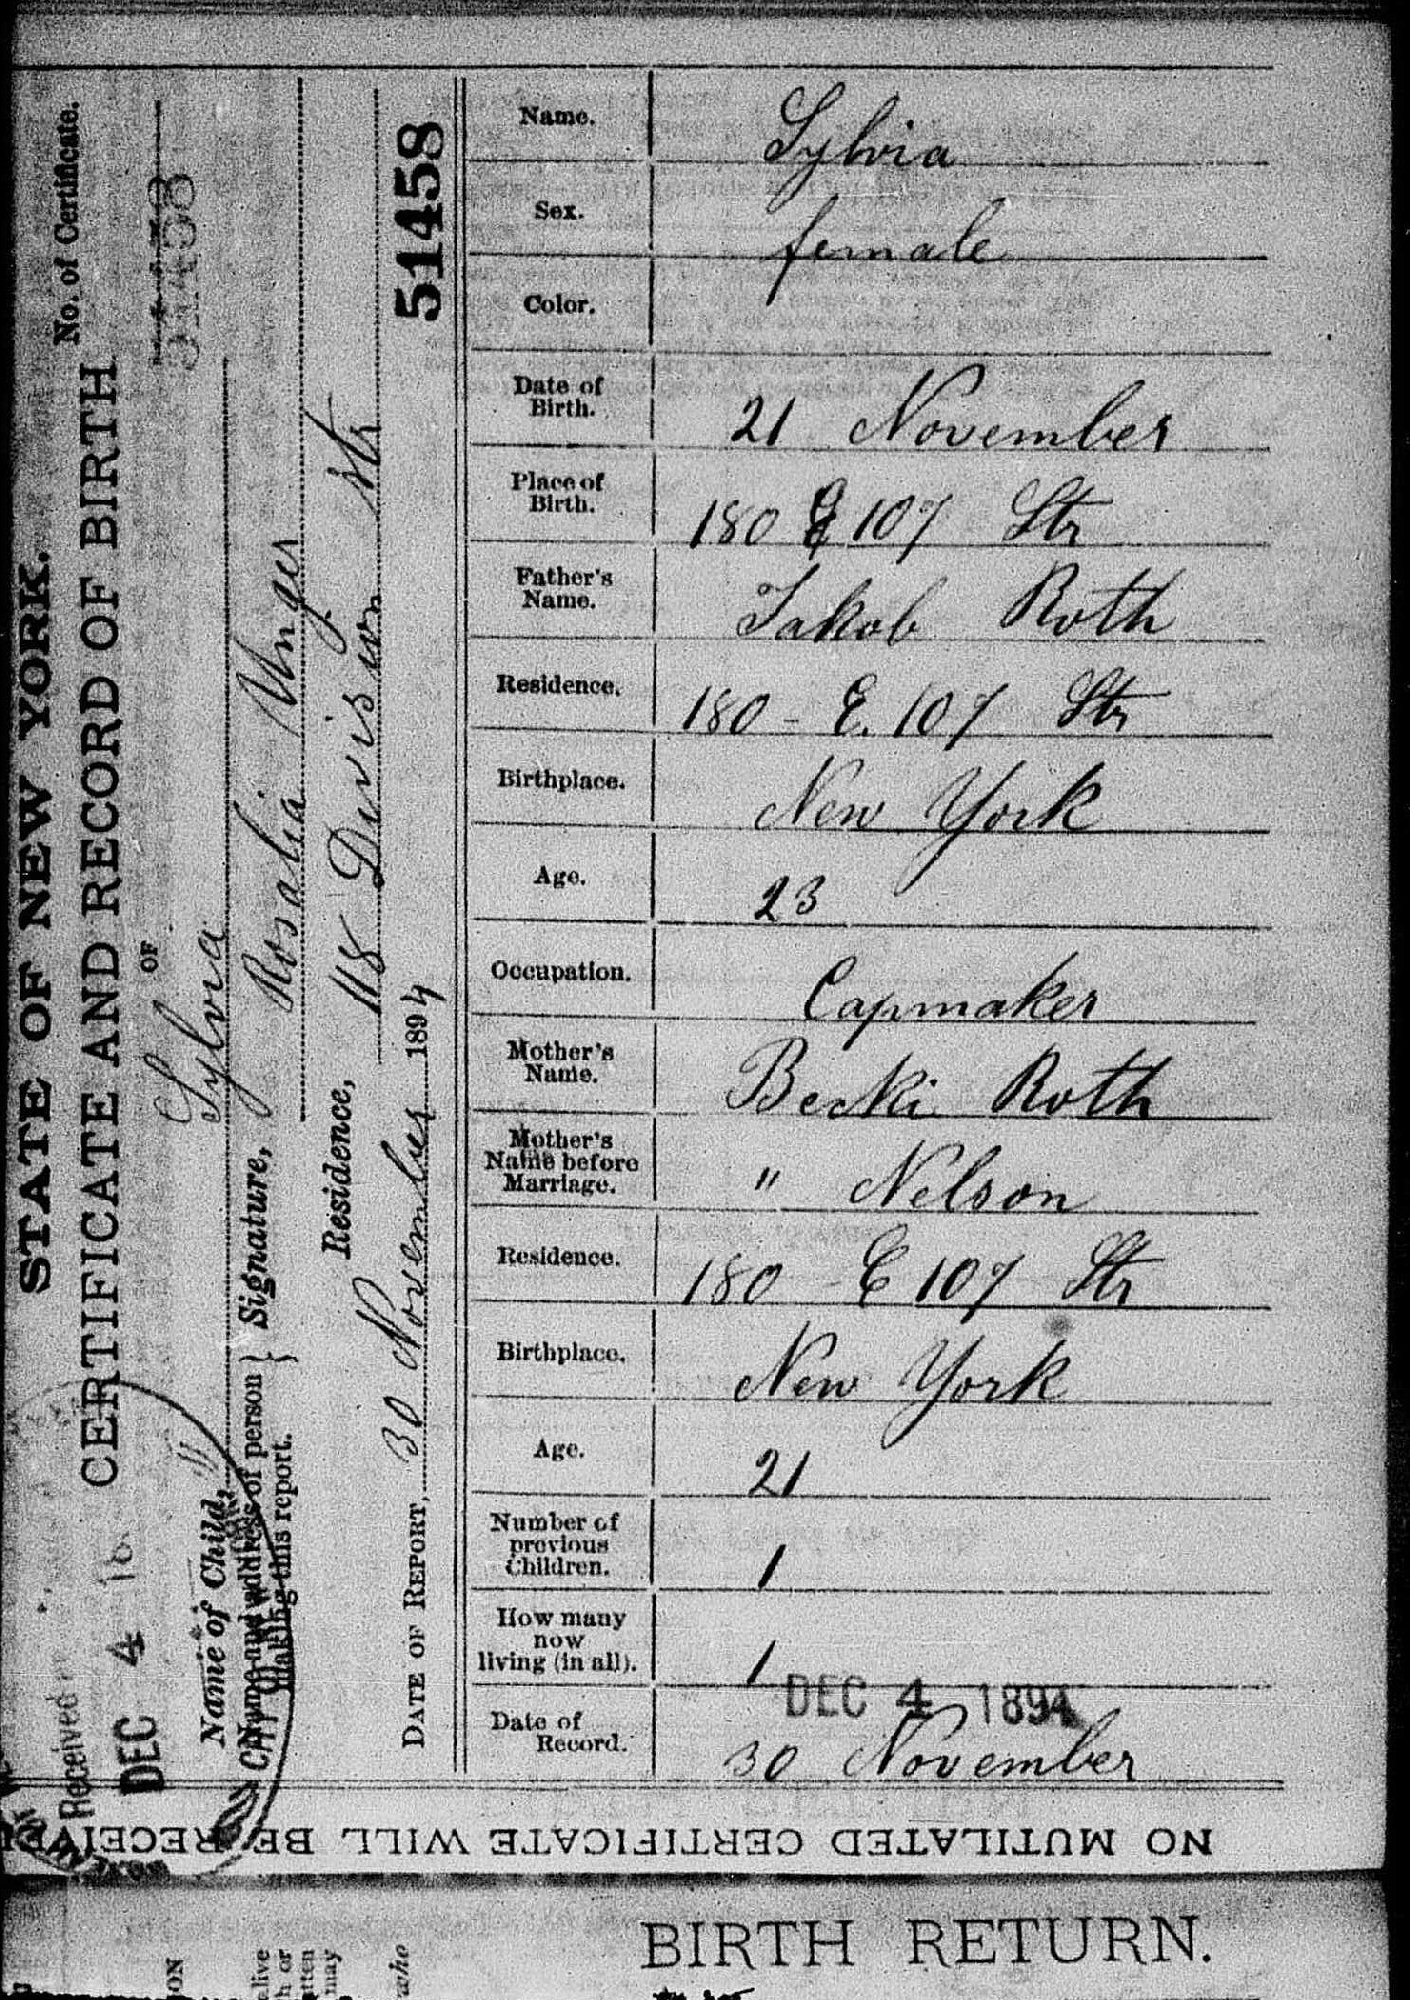 STATE OF NEW YORK.
No. of Certificate.
CERTIFICATE AND RECORD OF BIRTH
51458
OF
Name of Child, Sylvia
Name and address of person making this report. } Signature, Rosalia Unger
Residence, 118 Devision Str
DATE OF REPORT, 30 November 1894
51458
Received
DEC 4 18
Name. Sylvia
Sex. female
Color.
Date of Birth. 21 November
Place of Birth. 180 E 107 Str
Father's Name. Jakob Roth
Residence. 180 - E. 107 Str
Birthplace. New York
Age. 23
Occupation. Capmaker
Mother's Name. Becki Roth
Mother's Name before Marriage. " Nelson
Residence. 180 - E 107 Str
Birthplace. New York
Age. 21
Number of previous Children. 1
How many now living (in all). 1
DEC 4 1894
Date of Record. 30 November
NO MUTILATED CERTIFICATE WILL BE RECEIVE
BIRTH RETURN.
ON
alive
h or
tten
may
who